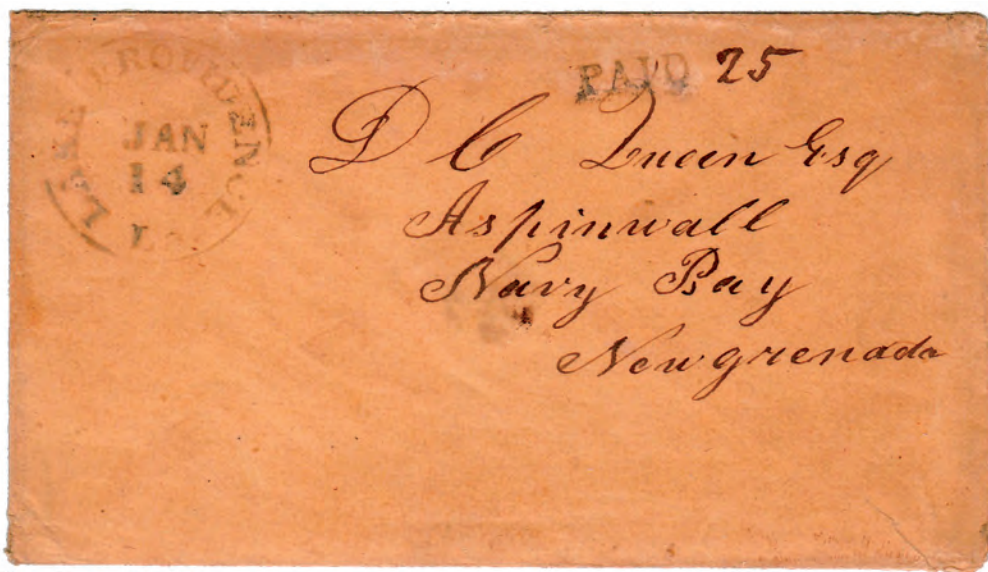 LAKE PROVIDENCE
JAN
14
La
PAID 25
D C Queen Esq
Aspinwall
Navy Bay
New grenada